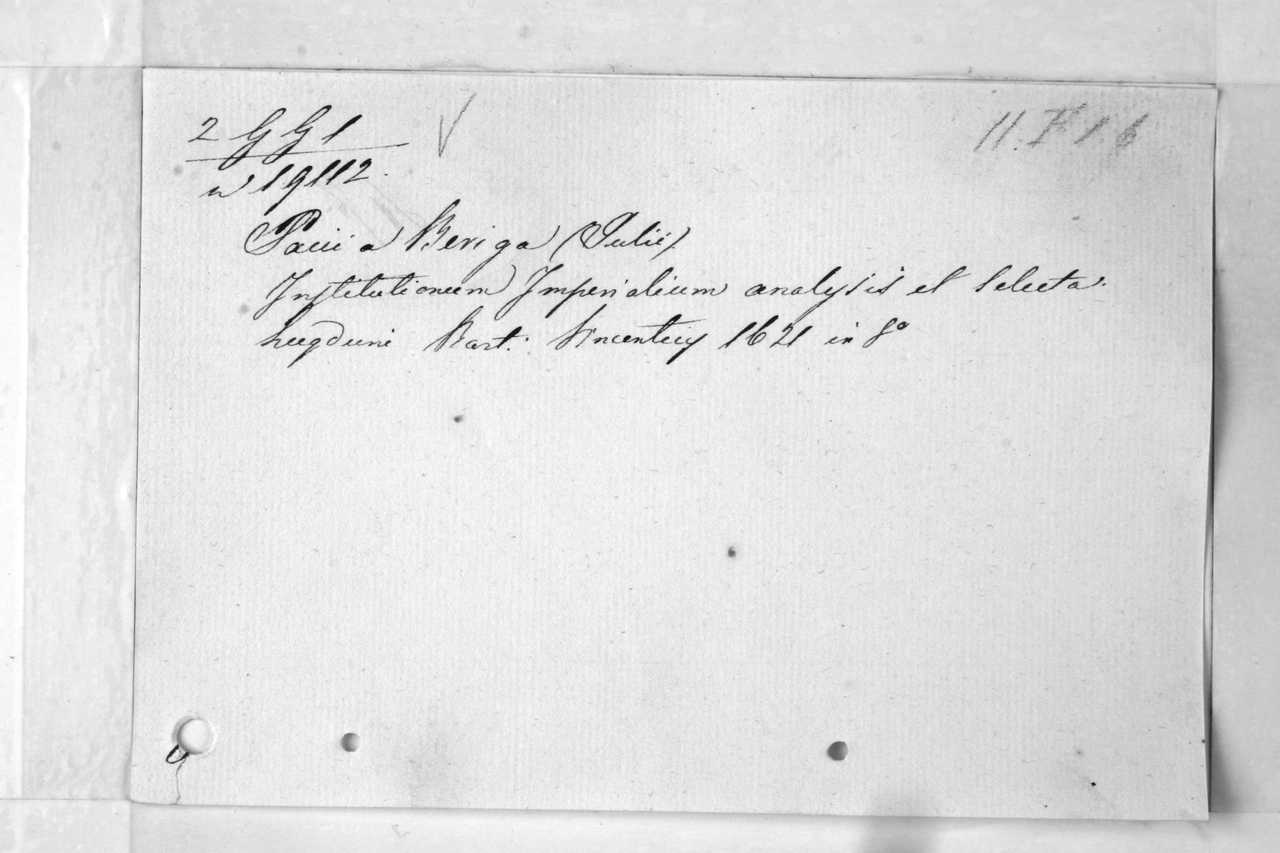 2 G G 1
11. F 1. 6
n° 19112.
Pacii a Beriga (Julii)
Institutionum Imperialium analysis et selecta.
Lugduni Bart: Vincentiy 1621 in 8°